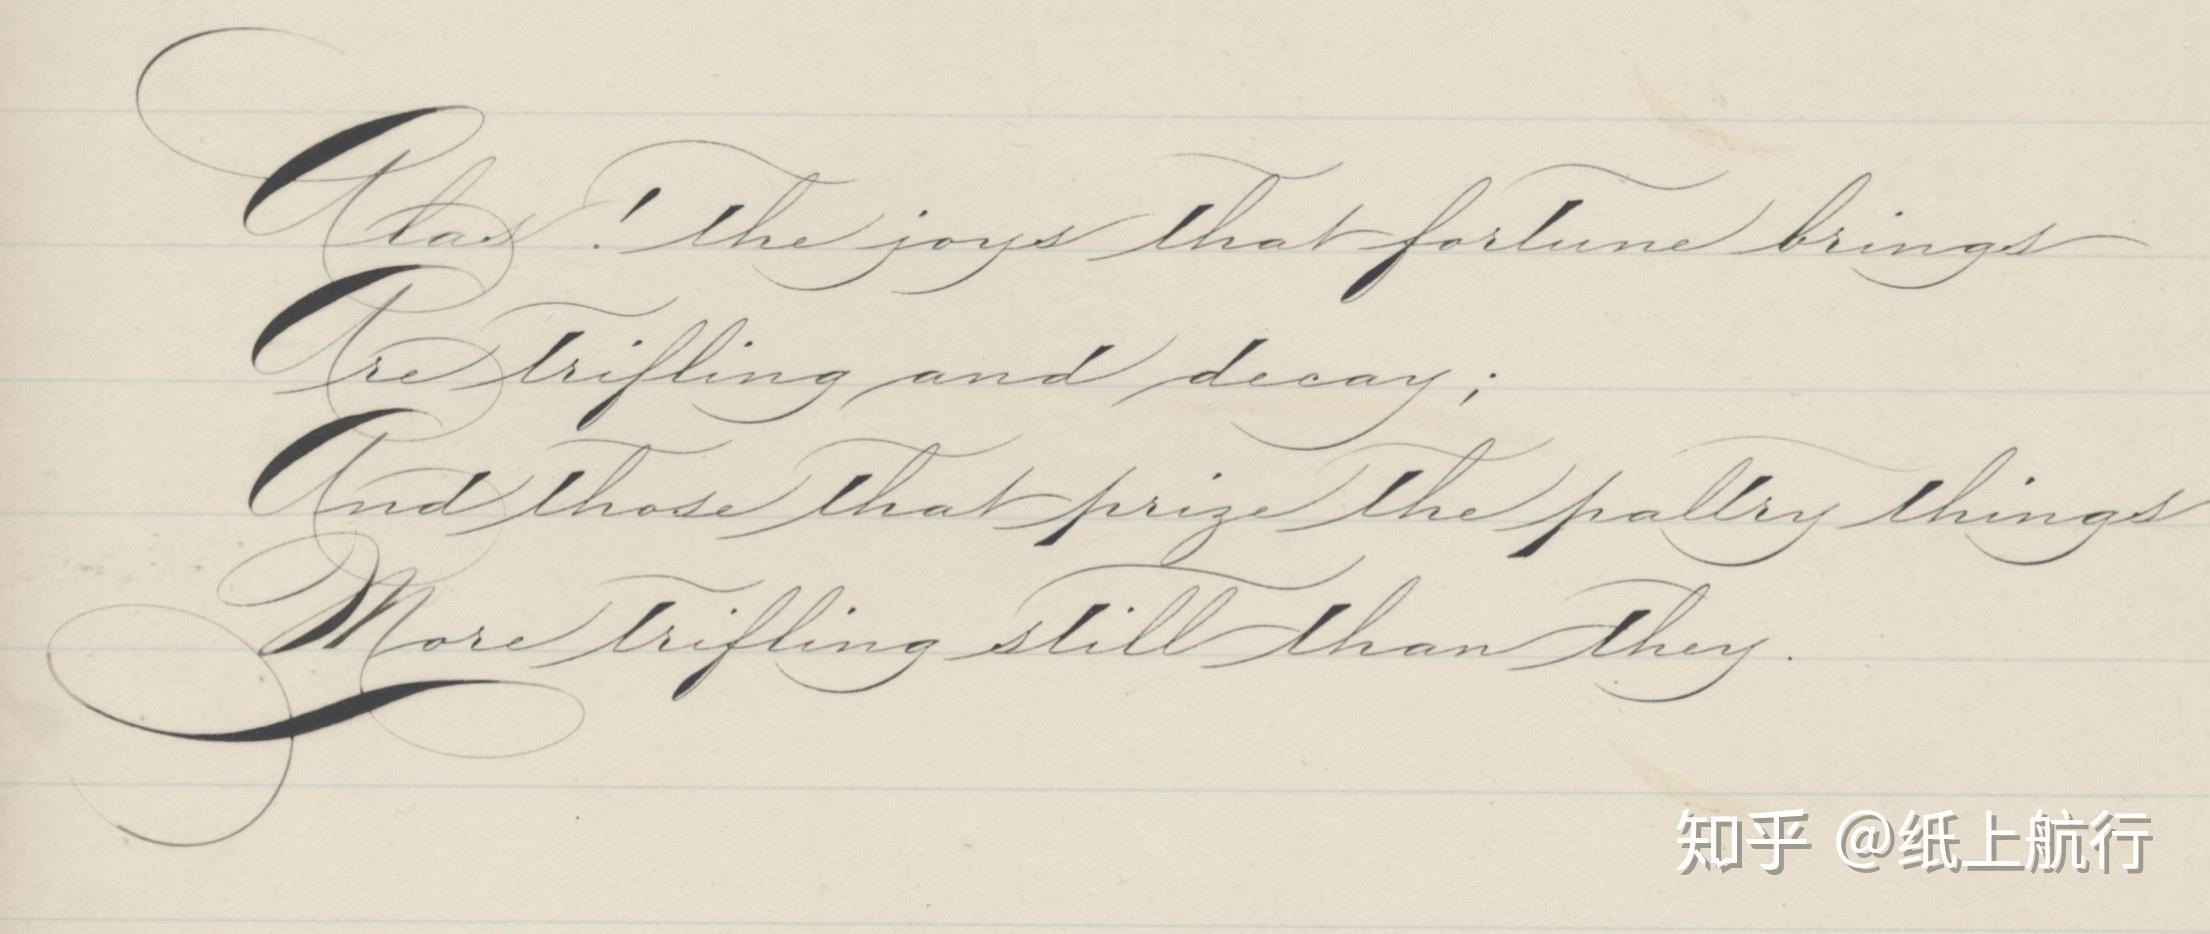 Alas! the joys that fortune brings
Are trifling and decay;
And those that prize the paltry things
More trifling still than they.
知乎 @纸上航行